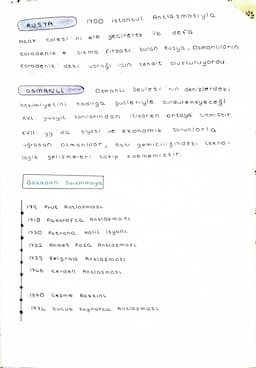 RUSYA 1700 İstanbul Antlaşmasıyla
Azak kalesi'ni ele geçirerek ilk defa
Karadeniz'e çıkma fırsatı bulan Rusya, Osmanlıların
Karadeniz'deki varlığı için tehdit oluşturuyordu.
OSMANLI Osmanlı Devleti'nin denizlerdeki
hakimiyetini kadırga gustleriyle sürdüremeyeceği
XVI. yüzyıl sonlarından itibaren ortaya çıkmıştır.
XVII. yy'da siyasi ve ekonomik sorunlarla
uğraşan Osmanlılar, Batı gemiciliğindeki tekno-
lojik gelişmeleri takip edememiştir.
Gazadan Savunmaya
1711 Prut Antlaşması
1718 Pasarofça Antlaşması
1730 Patrona Halil İsyanı
1732 Ahmet Paşa Antlaşması
1739 Belgrad Antlaşması
1746 Kerden Antlaşması
1770 Çeşme Baskını
1774 Küçük Kaynarca Antlaşması